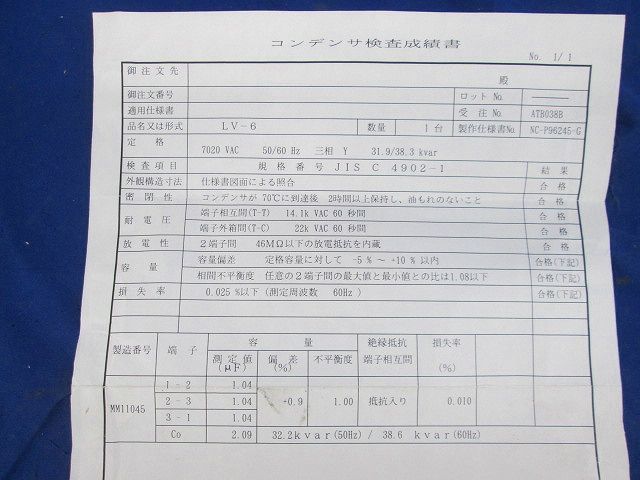 コンデンサ検査成績書
No. 1/1
御注文先 殿
御注文番号 ロットNo.
適用仕様書 受注No. ATB038B
品名又は形式 LV-6 数量 1台 製作仕様書No NC-P96245-G
定格 7020 VAC 50/60 Hz 三相 Y 31.9/38.3 kvar
検査項目 規格番号 JIS C 4902-1 結果
外観構造寸法 仕様書図面による照合 合格
密閉性 コンデンサが 70℃に到達後 2時間以上保持し、油もれのないこと 合格
耐電圧 端子相互間(T-T) 14.1k VAC 60 秒間 合格
端子外箱間(T-C) 22k VAC 60 秒間 合格
放電性 2端子間 46MΩ以下の放電抵抗を内蔵 合格
容量 容量偏差 定格容量に対して -5%～+10%以内 合格(下記)
相間不平衡度 任意の2端子間の最大値と最小値との比は1.08以下 合格(下記)
損失率 0.025%以下(測定周波数 60Hz) 合格(下記)
製造番号 端子 容量 絶縁抵抗 損失率
測定値 偏差 不平衡度 端子相互間
(μF) (%) (%)
1-2 1.04
MM11045 2-3 1.04 +0.9 1.00 抵抗入り 0.010
3-1 1.04
Co 2.09 32.2kvar(50Hz) / 38.6 kvar(60Hz)